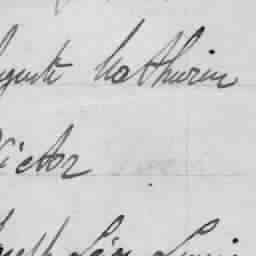 Auguste Mathurin
Victor
Joseph Léon Louis